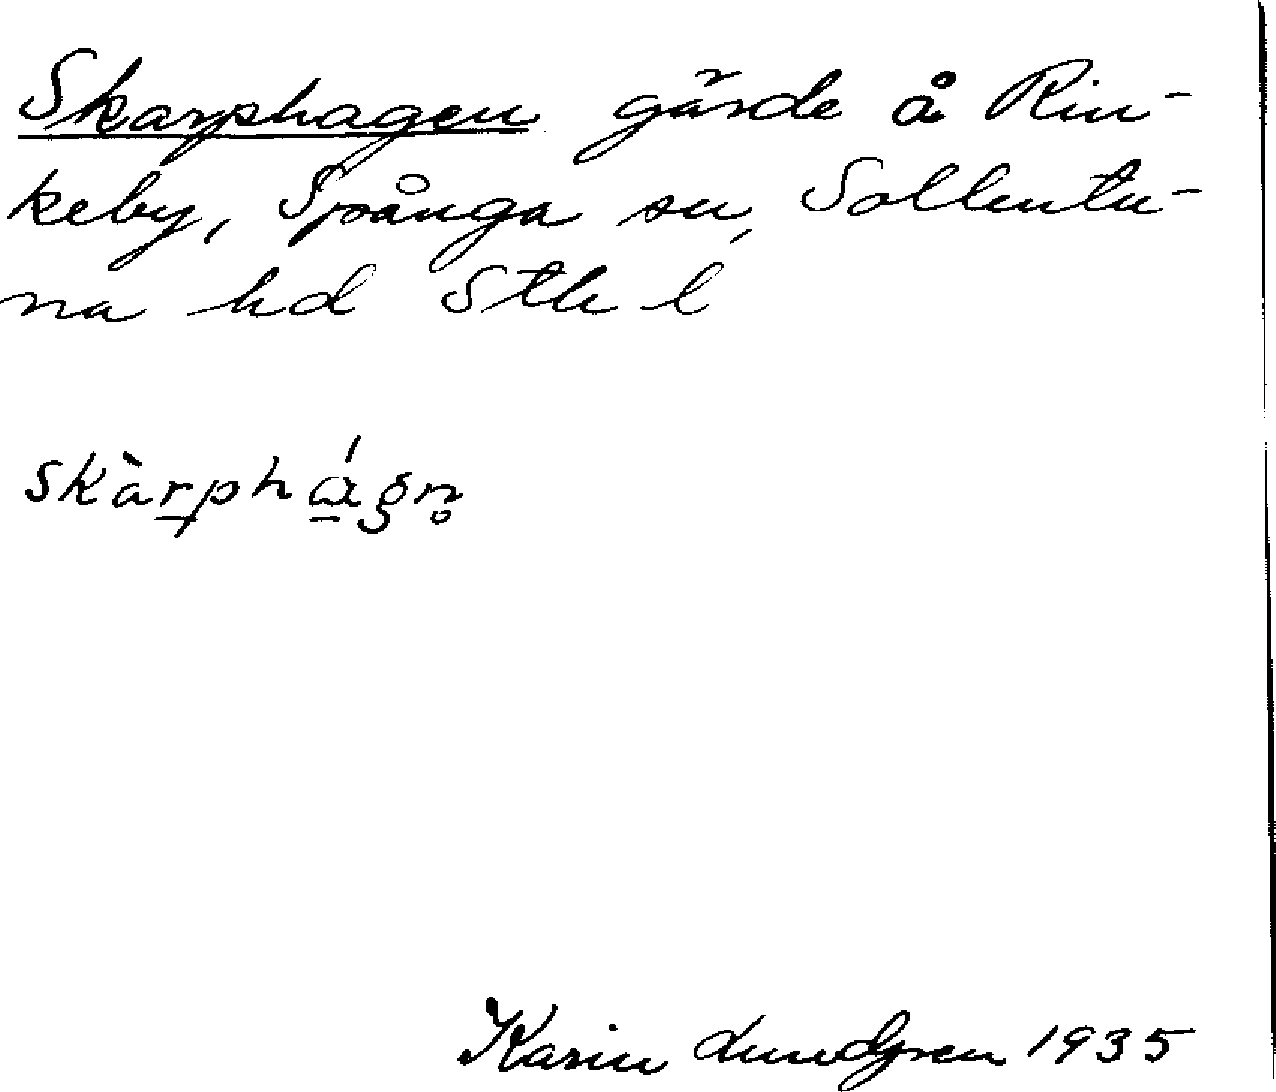 Skarphagen gärde å Rin-
keby, Spånga sn, Sollentu-
na hd Sthl
skàrphágn̥
Karin Lundgren 1935